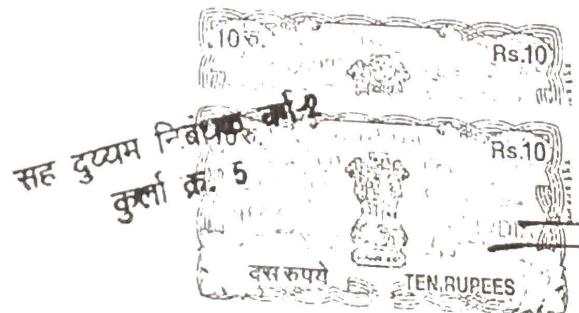 10 रु.
Rs.10
सह दुय्यम निबंधक वर्ग-२
कुर्ला क्र. 5
Rs.10
दस रुपये
TEN RUPEES